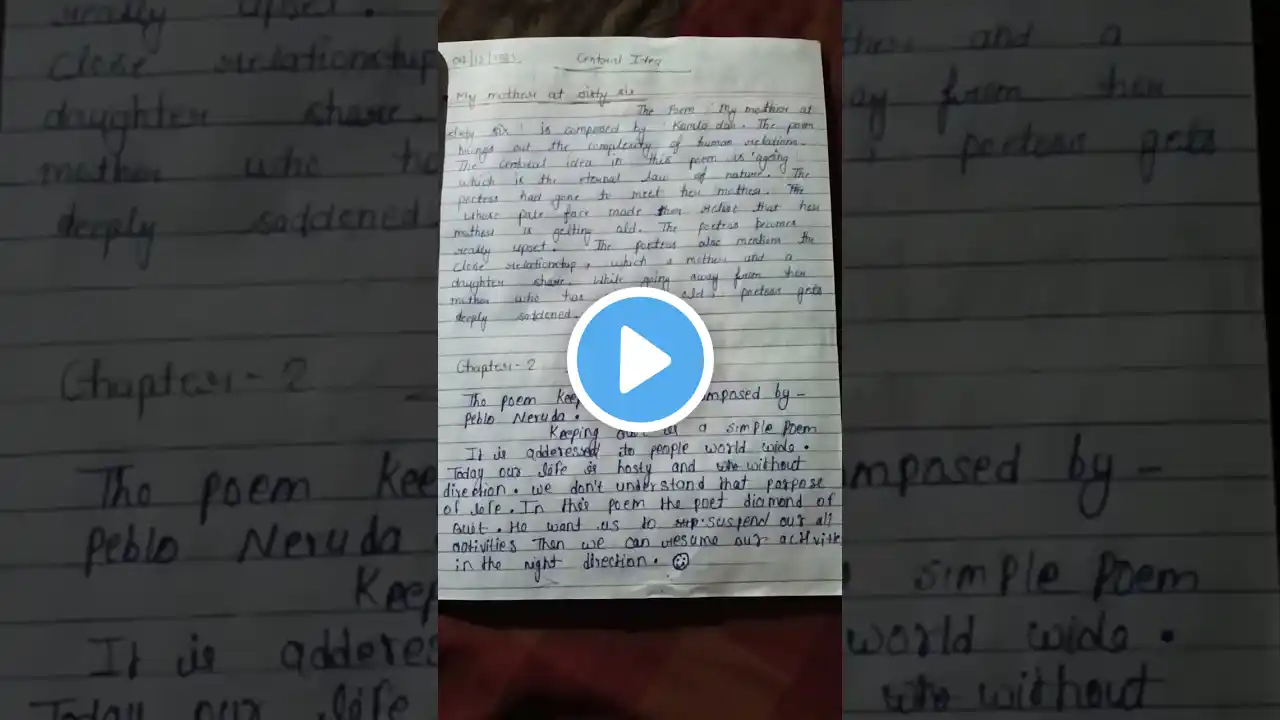 Central Idea
My mother at sixty six
The Poem 'My mother at
sixty six' is composed by 'Kamla das. The poem
brings out the complexity of human relation.
The central idea in this poem is 'ageing'
which is the eternal law of nature. The
poetess had gone to meet her mother. The
whose pale face made her relise that her
mother is getting old. The poetess becomes
really upset. The poetess also mentions the
close relationship, which a mother and a
daughter share. While going away from her
mother who has old, poetess gets
deeply saddened.
Chapter-2
The poem Keep mposed by-
Peblo Neruda.
Keeping is a simple Poem
It is adderesed to people world wide.
Today our life is hosty and without
direction. we don't understand that porpose
of life. In this poem the poet diamond of
Quit. He want us to suspend our all
activities Then we can resume our activitie
in the right direction.